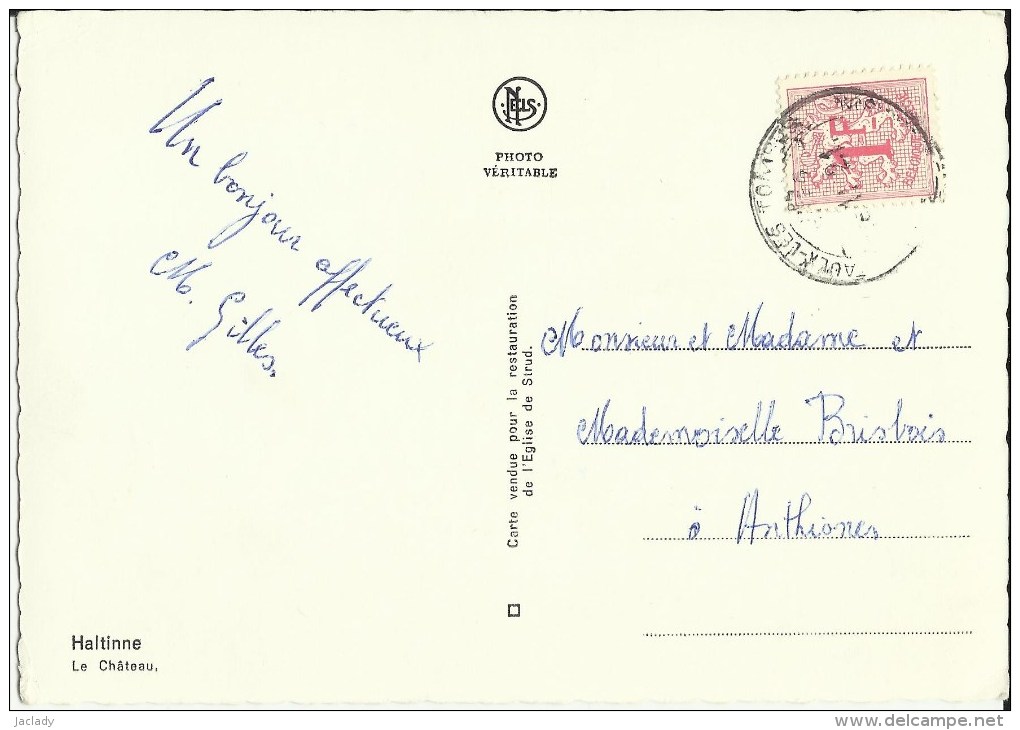 Un bonjour affectueux
M. Gilles.
NELS
PHOTO
VÉRITABLE
1F
FAULX-LES TOMBES
Carte vendue pour la restauration
de l'Eglise de Strud.
Monsieur et Madame et
Mademoiselle Brisbois
à Anthisnes
Haltinne
Le Château,
jaclady
www.delcampe.net